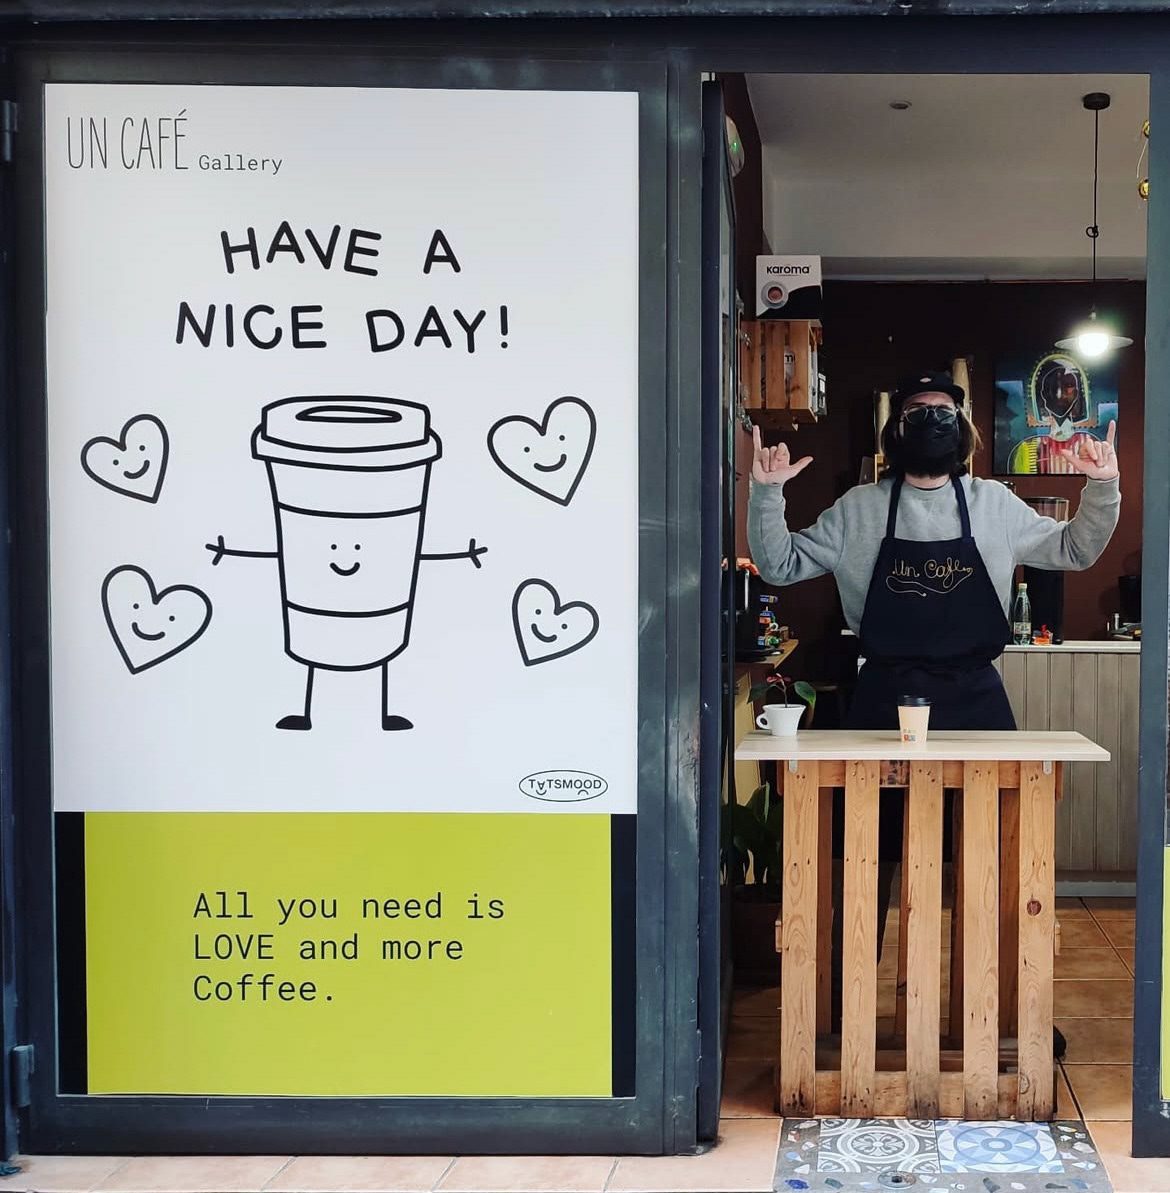 UN CAFÉ Gallery
HAVE A
NICE DAY!
TATSMOOD
All you need is
LOVE and more
Coffee.
karoma
Un Cafe